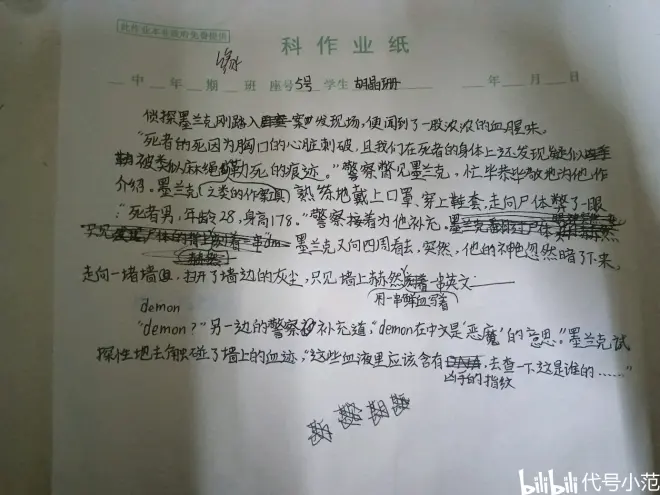 此作业本由政府免费提供
科作业纸
中 年 期 班 座号 5号 学生 胡晶珊 年 月 日
侦探墨兰克刚踏入案发现场,便闻到了一股浓浓的血腥味。
“死者的死因为胸口的心脏刺破,且我们在死者的身体上还发现疑似
被类似麻绳勒死的痕迹。”警察瞥见墨兰克,忙毕恭毕敬地为他作
介绍。墨兰克熟练地戴上口罩、穿上鞋套,走向尸体瞥了一眼
之类的作案
“死者男,年龄28,身高178。”警察接着为他补充。
墨兰克又向四周看去,突然,他的神色忽然暗了下来,
走向一堵墙,扫开了墙边的灰尘,只见墙上赫然 一串英文
用一串鲜血写着
demon
“demon?”另一边的警察补充道,“demon在中文是‘恶魔’的意思。”墨兰克试
探性地去触碰了墙上的血迹,“这些血液里应该含有 ,去查一下这是谁的……”
凶手的指纹
bilibili 代号小范